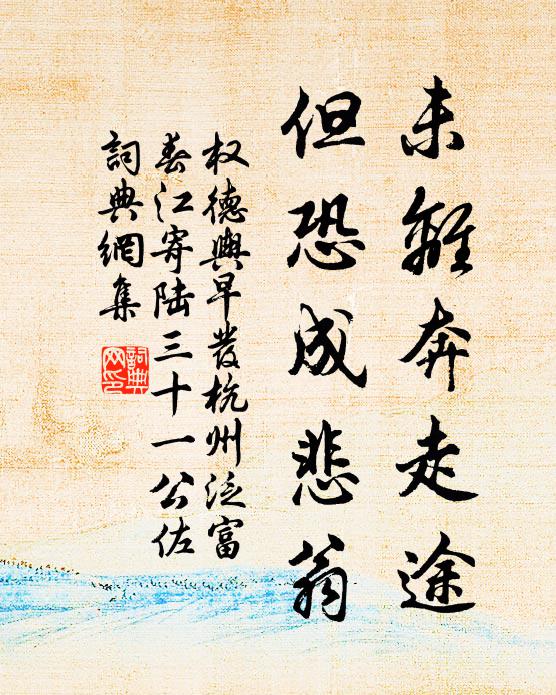 未離奔走途
但恐成悲翁
权德舆早發杭州泛富
春江寄陆三十一公佐
詞典網集
詞典
网印